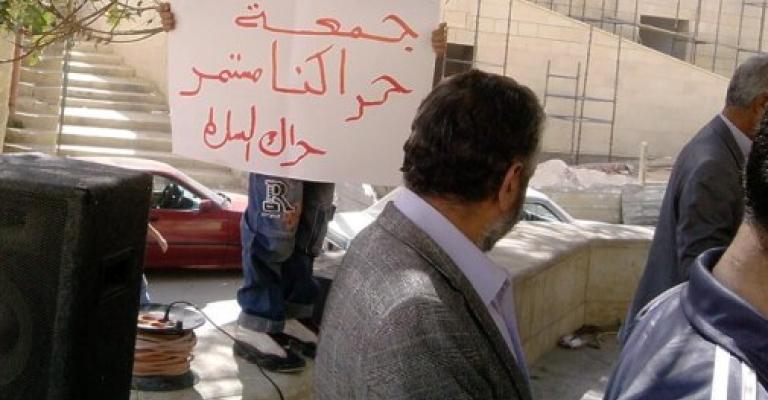 جمعة
حراكنا مستمر
حراك السلط
R